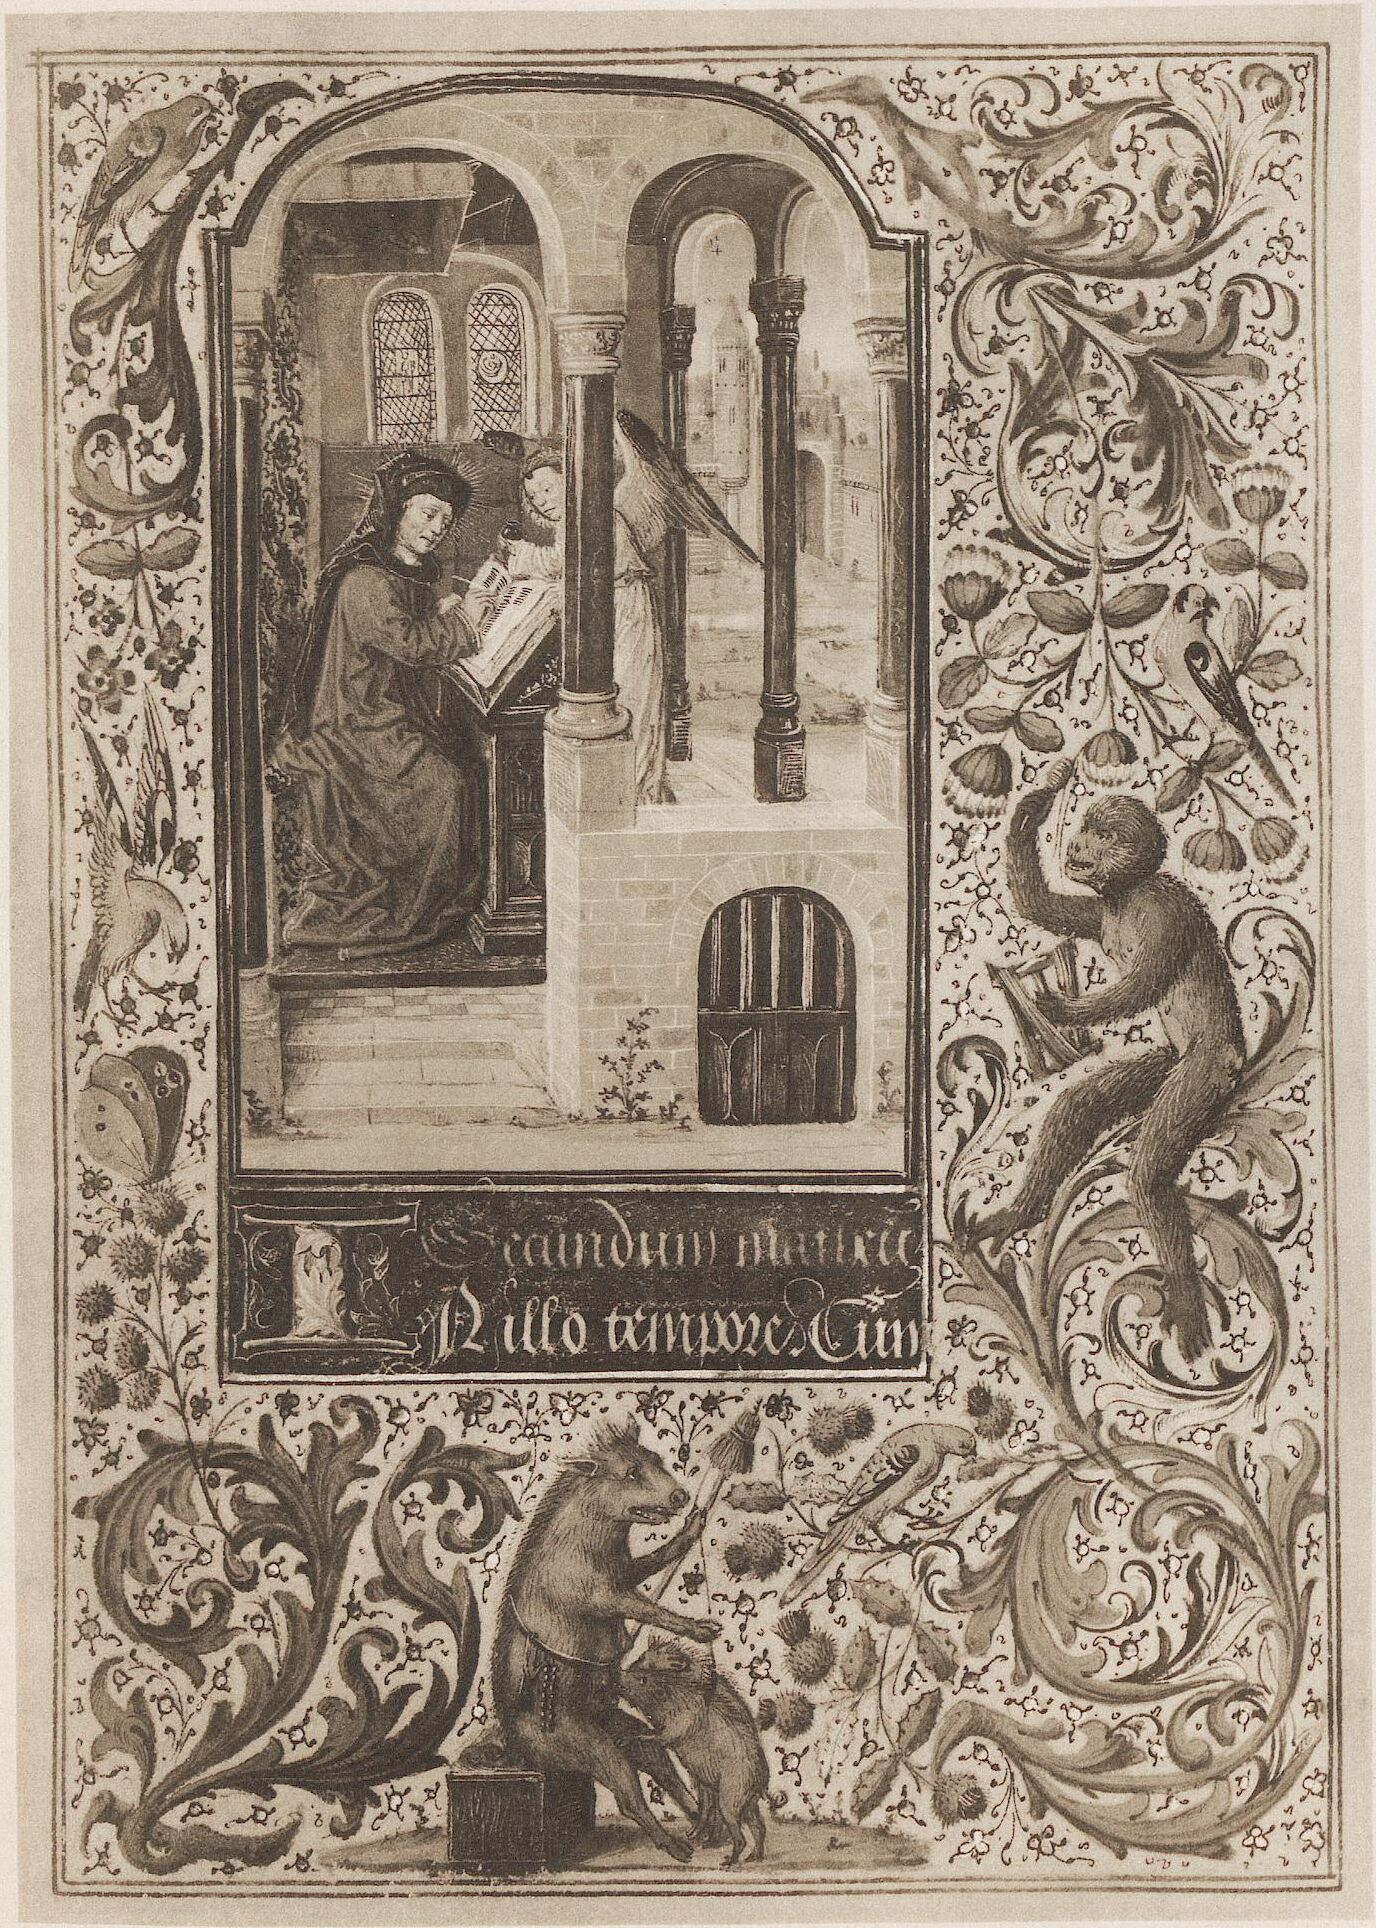 Secundum matheu
IN illo tempore. Cum